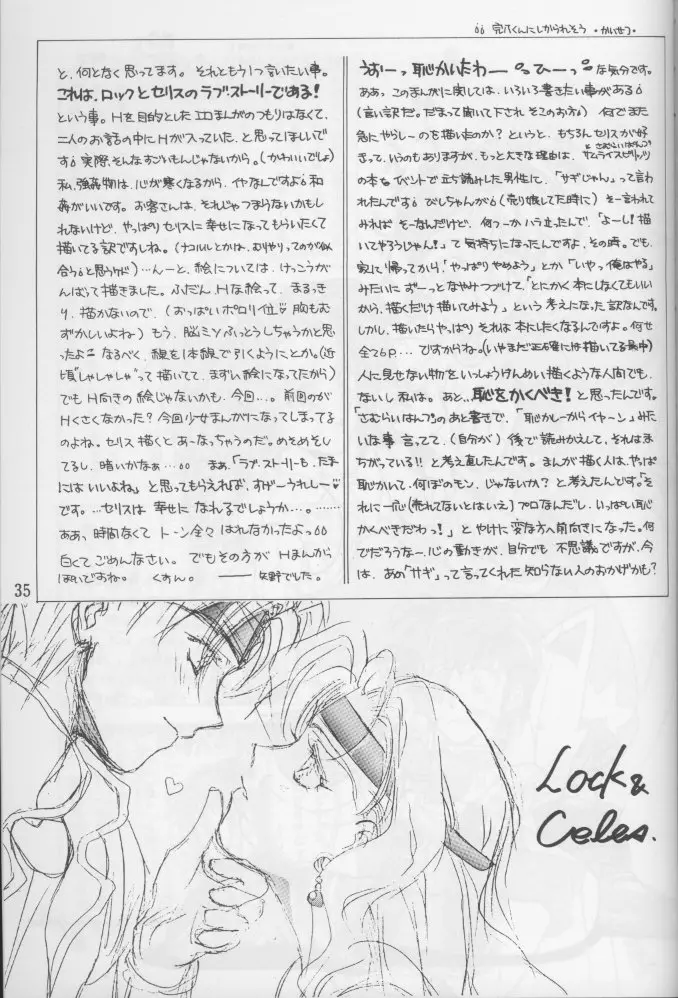 完爪くんにしかられそう ・かいせつ・
うおーっ恥かいたわー ひーっ な気分です。
ああっ、このまんがに関しては、いろいろ書きたい事がある
(言い訳だ。だまって聞いて下され そこのお方) 何でまた
急にやらしーのも描いたのか?というと、もちろんセリスが好
きって、いうのもありますが、もっと大きな理由は、サムライスピリッツ
と さむらいはんつ
の本をイベントで立ち読みした男性に、「サギじゃん」って言わ
れたんです びしちゃんが(売り娘してた時に) そー言われて
みれば そーなんだけど、何つーかハラ立ったんで、「よーし!描
いてやろうじゃん!」て気持ちになったんですよ、その時。でも、
家に帰ってから「やっぱりやめよう」とか「いやっ俺はやる」
みたいに ずーっとなやみつづけて、「とにかく本にしなくてもいい
から、描くだけ描いてみよう」という考えになった訳なんです。
しかし、描いたらやっぱり それは本にしたくなるんですよ。何せ
全て6P…ですからね。(いやまだ正確には描いてる最中)
人に見せない物をいっしょうけんめい描くような人間でも、
ないし私は。あと…恥をかくべき!と思ったんです。
「さむらいはんつ」のあと書きで、「恥かしーからイヤーン」みた
いな事 言ってて、(自分が) 後で読みかえして、それはま
ちがっている!!と考え直したんです。まんが描く人は、やっぱ
恥かいて、何ぼのモン、じゃないか?と考えたんです。「そ
れに一応(売れてないとはいえ)プロなんだし、いっぱい恥
かくべきだわっ!」とやけに変な方へ前向きになった。何
でだろうなー、心の動きが、自分でも 不思議ですが、今
は、あの「サギ」って言ってくれた知らない人のおかげかも?
と、何となく思ってます。それともう1つ言いたい事。
これは、ロックとセリスのラブストーリーである!
という事。Hを目的としたエロまんがのつもりはなくて、
二人のお話の中にHが入っていた、と思ってほしいで
す 実際、そんなすごいもんじゃないから。(かわいいでしょ)
私、強姦物は、心が寒くなるから、イヤなんですよ 和
姦がいいです。お客さんは、それじゃつまらないかもし
れないけど、やっぱりセリスに幸せになってもらいたくて
描いてる訳ですしね。(ナコルルとかは、むりやりってのが似
合うと思うケド)…んーと、絵については、けっこうが
んばって描きました。ふだんHな絵って、まるっき
り、描かないので、(おっぱいポロリ位 胸もむ
ずかしいよね) もう、脳ミソふっとうしちゃうかと思
ったよ なるべく、線を1本線で引くようにとか。(近
頃"しゃしゃしゃ"って描いてて、まずい絵になってたから)
でもH向きの絵じゃないかも、今回…。前回のが
Hくさくなかった?今回少女まんがになってしまってる
のよね。セリス描くとあーなっちゃうのだ。めそめそし
てるし、暗いかなぁ… まぁ、「ラブ・ストーリーも、たま
にはいいよね」と思ってもらえれば、すげーうれしー♡
です。…セリスは 幸せに なれるでしょうか…。……
ああ、時間なくて トーン全々 はれなかったよっ
白くてごめんなさい。でもその方が Hまんがっ
ぽいですね。 くすん。 ――矢野でした。
35
Lock &
Celes.